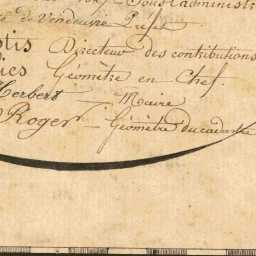 Sous administr
de Vendeuvre Préfet
Directeur des contributions
Géomètre en Chef.
Herbert — Maire
Roger — Géomètre du cadastre